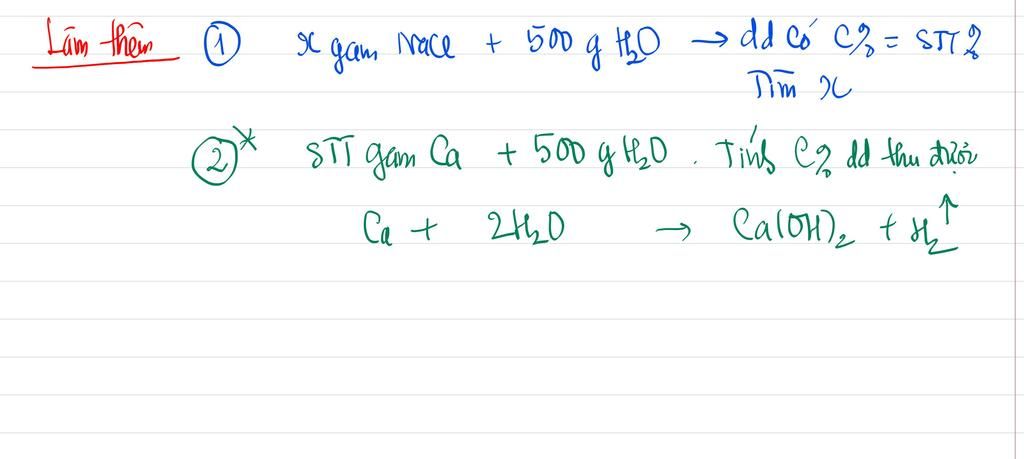 Làm thêm ① x gam NaCl + 500 g H₂O → dd có C% = STT%
Tìm x
②* STT gam Ca + 500 g H₂O. Tính C% dd thu được
Ca + 2H₂O → Ca(OH)₂ + H₂↑